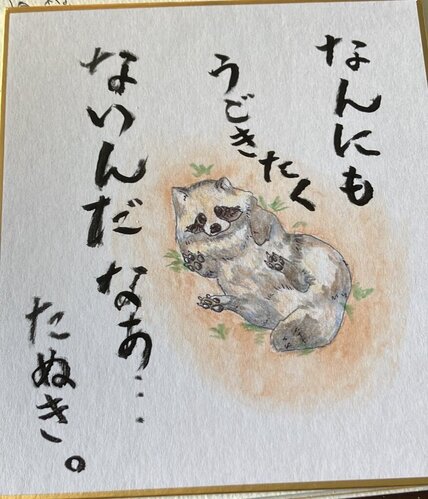 なんにも
うごきたく
ないんだなあ…
たぬき。